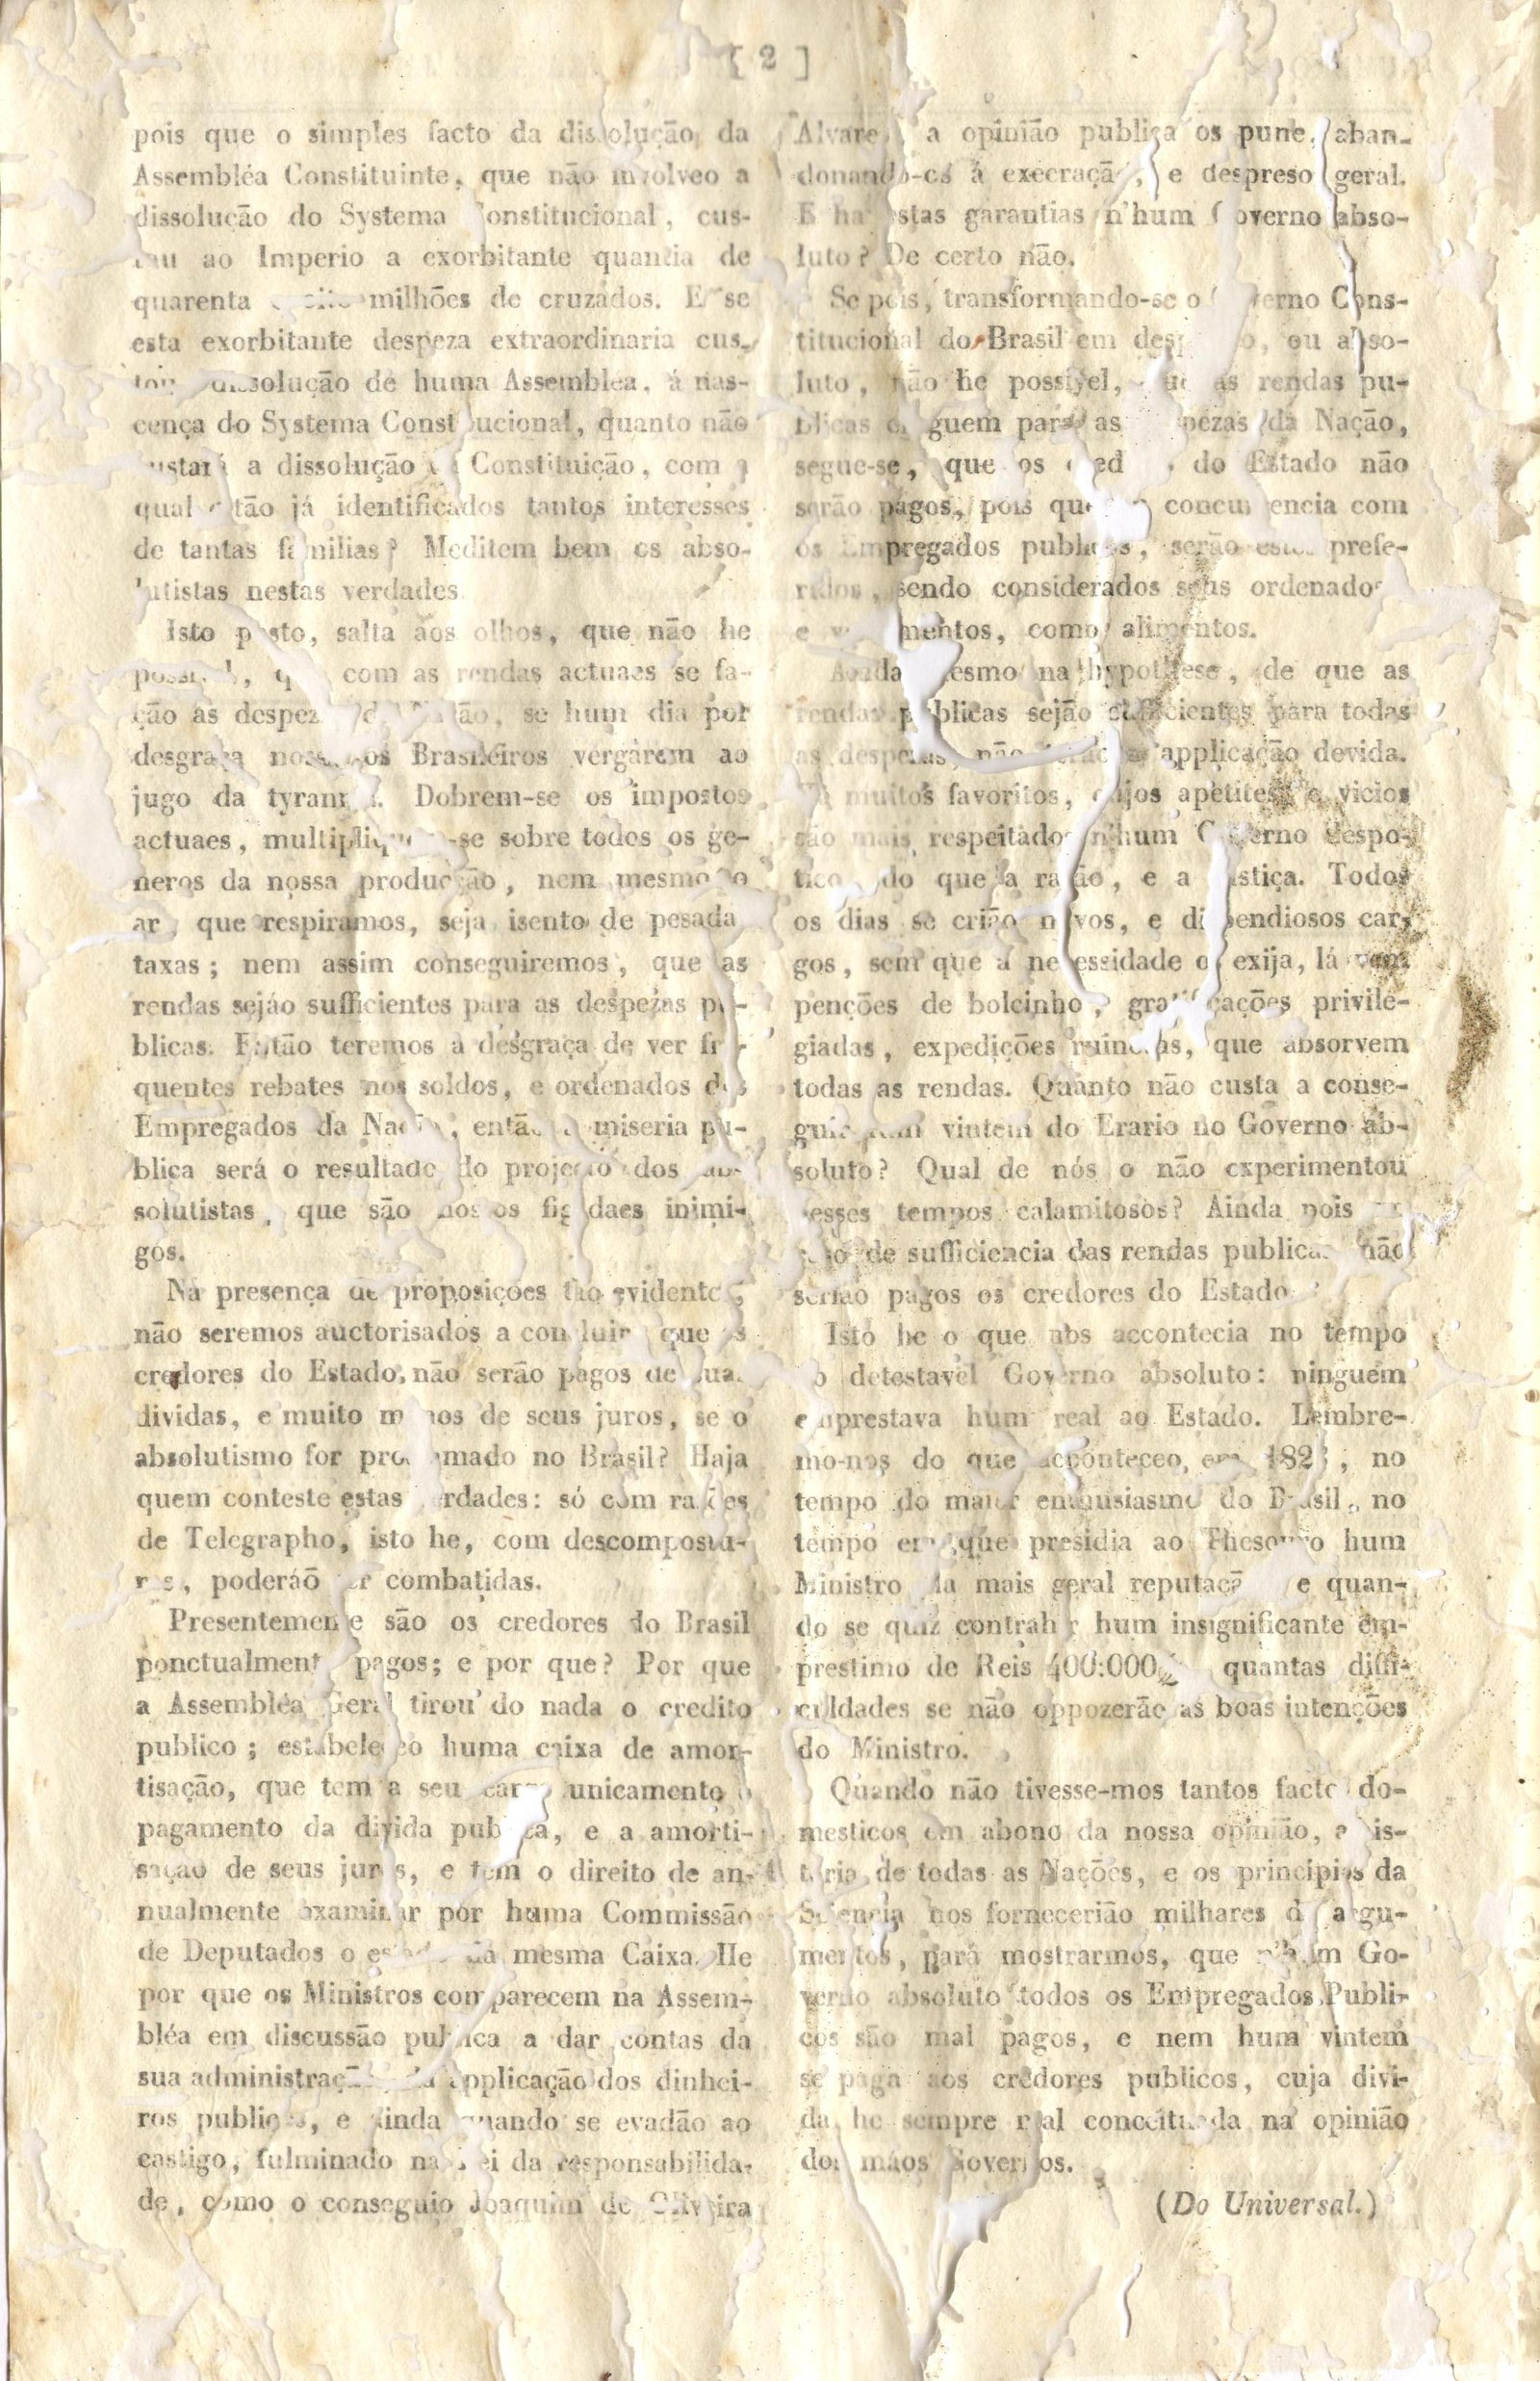 [ 2 ]
pois que o simples facto da dissolução da
Assembléa Constituinte, que não involveo a
dissolução do Systema Constitucional, cus-
tou ao Imperio a exorbitante quantia de
quarenta milhões de cruzados. E se
esta exorbitante despeza extraordinaria cus-
tou dissolução de huma Assemblea, á nas-
cença do Systema Constitucional, quanto não
custará a dissolução da Constituição, com a
qual estão já identificados tantos interesses
de tantas familias? Meditem bem os abso-
lutistas nestas verdades.
Isto posto, salta aos olhos, que não he
possivel, que com as rendas actuaes se fa-
ção as despezas da Nação, se hum dia por
desgraça nossa os Brasileiros vergárem ao
jugo da tyrannia. Dobrem-se os impostos
actuaes, multipliquem-se sobre todos os ge-
neros da nossa producção, nem mesmo o
ar, que respiramos, seja isento de pesada
taxas; nem assim conseguiremos, que as
rendas sejáo sufficientes para as despezas pu-
blicas. Então teremos a desgraça de ver fre-
quentes rebates nos soldos, e ordenados dos
Empregados da Nação, então a miseria pu-
blica será o resultado do projecto dos ab-
solutistas, que são nossos figadaes inimi-
gos.
Na presença de proposições tão evidentes,
não seremos auctorisados a concluir, que os
credores do Estado, não serão pagos de suas
dividas, e muito menos de seus juros, se o
absolutismo for proclamado no Brasil? Haja
quem conteste estas verdades: só com razões
de Telegrapho, isto he, com descompostu-
ras, poderáõ ser combatidas.
Presentemente são os credores do Brasil
ponctualmente pagos; e por que? Por que
a Assembléa Geral tirou do nada o credito
publico; estabeleceo huma caixa de amor-
tisação, que tem a seu cargo unicamente o
pagamento da divida publica, e a amorti-
sação de seus juros, e tem o direito de an-
nualmente examinar por huma Commissão
de Deputados o estado da mesma Caixa. He
por que os Ministros comparecem na Assem-
bléa em discussão publica a dar contas da
sua administração, da applicação dos dinhei-
ros publicos, e ainda quando se evadão ao
castigo, fulminado na Lei da responsabilida-
de, como o conseguio Joaquim de Oliveira
Alvares, a opinião publica os pune, aban-
donando-os á execração, e despreso geral.
E ha estas garantias n'hum Governo abso-
luto? De certo não.
Se pois, transformando-se o Governo Cons-
titucional do Brasil em despotico, ou abso-
luto, não he possivel, que as rendas pu-
blicas cheguem para as despezas da Nação,
segue-se, que os credores do Estado não
serão pagos, pois que em concurrencia com
os Empregados publicos, serão estes prefe-
ridos, sendo considerados seus ordenados
e vencimentos, como alimentos.
Ainda mesmo na hypothese, de que as
rendas publicas sejão sufficientes para todas
as despezas, não terão a applicação devida.
Ha muitos favoritos, cujos apetites, e vicios
são mais respeitados n'hum Governo despo-
tico, do que a razão, e a justiça. Todos
os dias se crião novos, e dispendiosos car-
gos, sem que a necessidade os exija, lá vem
penções de bolcinho, gratificações privile-
giadas, expedições ruinosas, que absorvem
todas as rendas. Quanto não custa a conse-
guir hum vintem do Erario no Governo ab-
soluto? Qual de nós o não experimentou
nesses tempos calamitosos? Ainda pois no
caso de sufficiencia das rendas publicas não
serião pagos os credores do Estado.
Isto he o que nos accontecia no tempo
do detestavel Governo absoluto: ninguem
emprestava hum real ao Estado. Lembre-
mo-nos do que acconteceo, em 182 , no
tempo do maior enthusiasmo do Brasil, no
tempo em que presidia ao Thesouro hum
Ministro da mais geral reputação, e quan-
do se quiz contrahir hum insignificante em-
prestimo de Reis 400:000 quantas diffi-
culdades se não oppozerão as boas intenções
do Ministro.
Quando não tivesse-mos tantos factos do-
mesticos em abono da nossa opinião, a his-
toria de todas as Nações, e os principios da
Sciencia nos fornecerião milhares de argu-
mentos, pará mostrarmos, que n'hum Go-
verno absoluto todos os Empregados Publi-
cos são mal pagos, e nem hum vintem
se paga aos credores publicos, cuja divi-
da he sempre mal conceituada na opinião
dos máos Governos.
(Do Universal.)